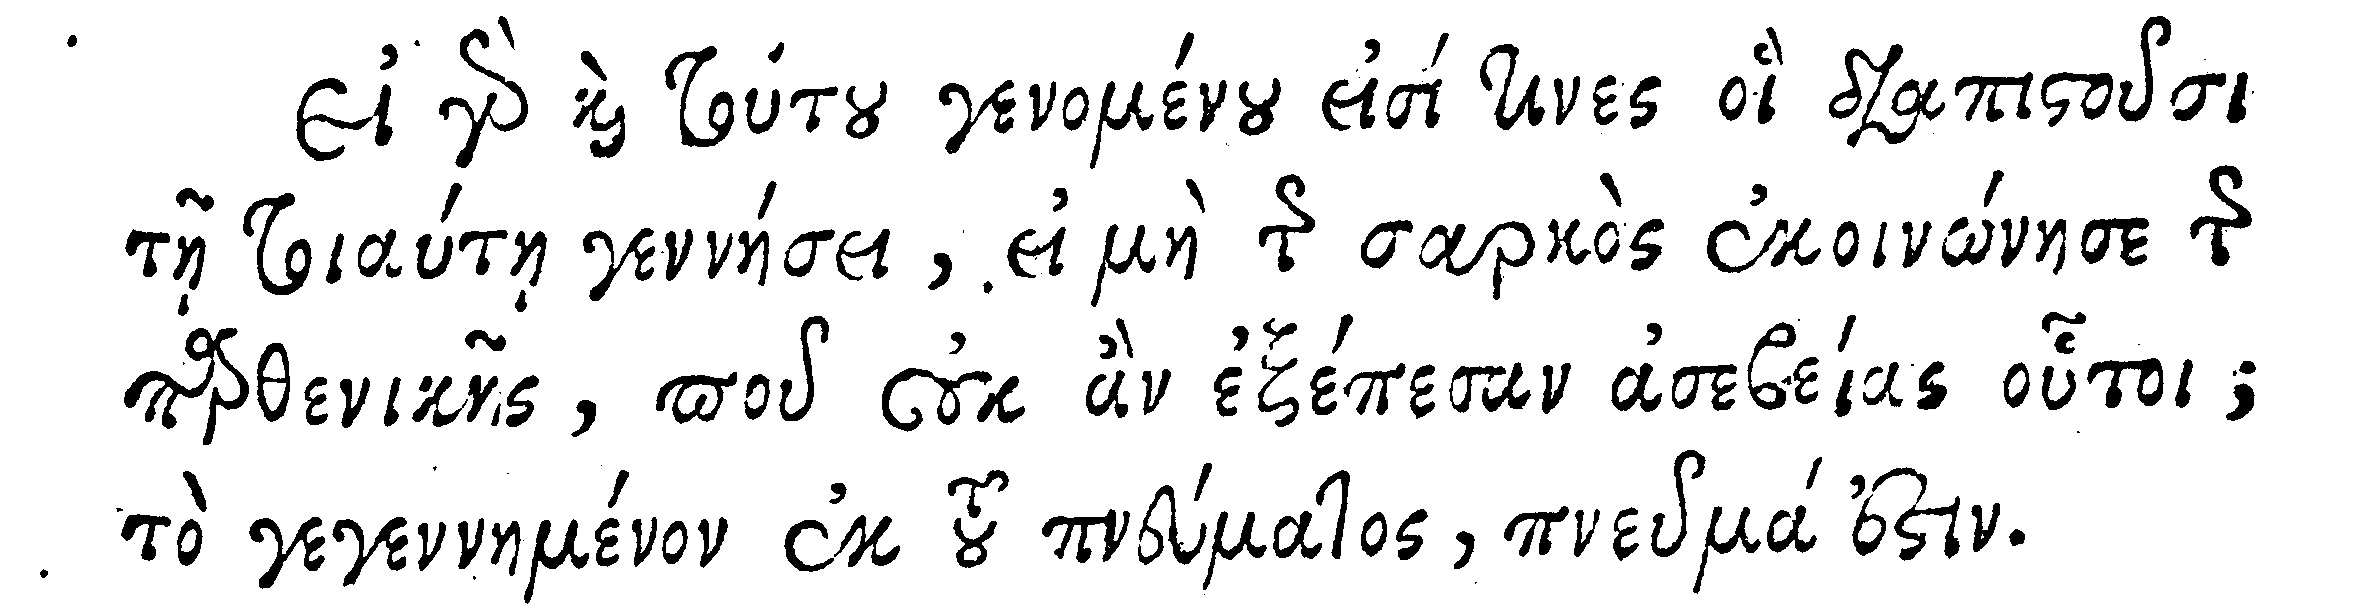 εἰ γὰρ καὶ τούτου γενομένου εἰσί τινες οἳ διαπιστοῦσι
τῇ τοιαύτῃ γεννήσει, εἰ μὴ τῆς σαρκὸς ἐκοινώνησε τῆς
παρθενικῆς, ποῦ οὐκ ἂν ἐξέπεσαν ἀσεβείας οὗτοι;
τὸ γεγεννημένον ἐκ τοῦ πνεύματος, πνεῦμά ἐστιν.